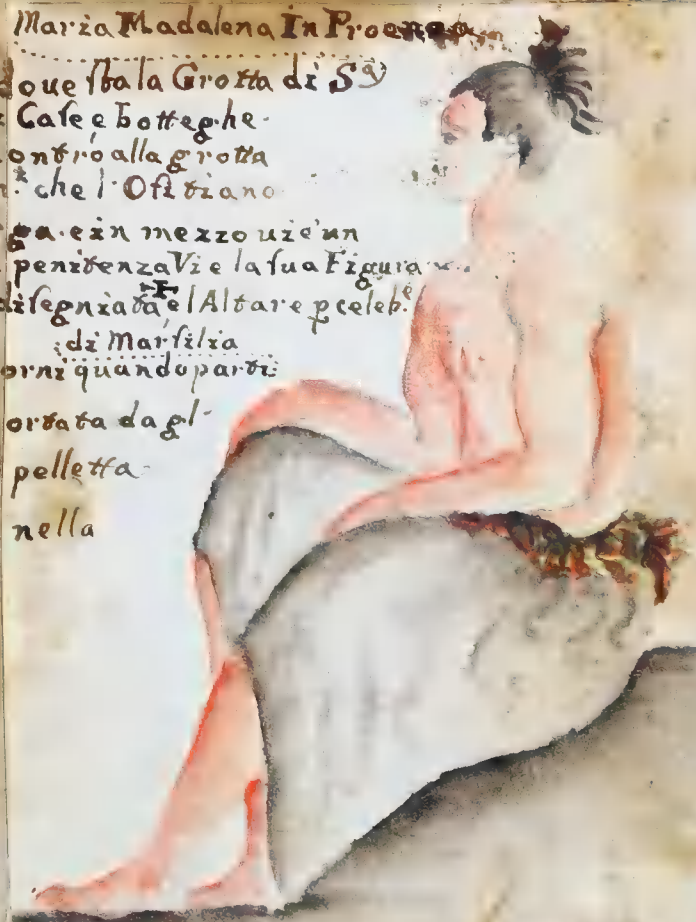 Maria Madalena In Proenca
doue sta la Grotta di S.ª
Case e botteghe
ontro alla grotta
che l'Ositiano
ga. e in mezzo uie un
penitenza Vi e la sua Figura
disegniata e l Altare p celeb.e
di Marsilia
orni quando parti
ortata dagl
pelletta
nella